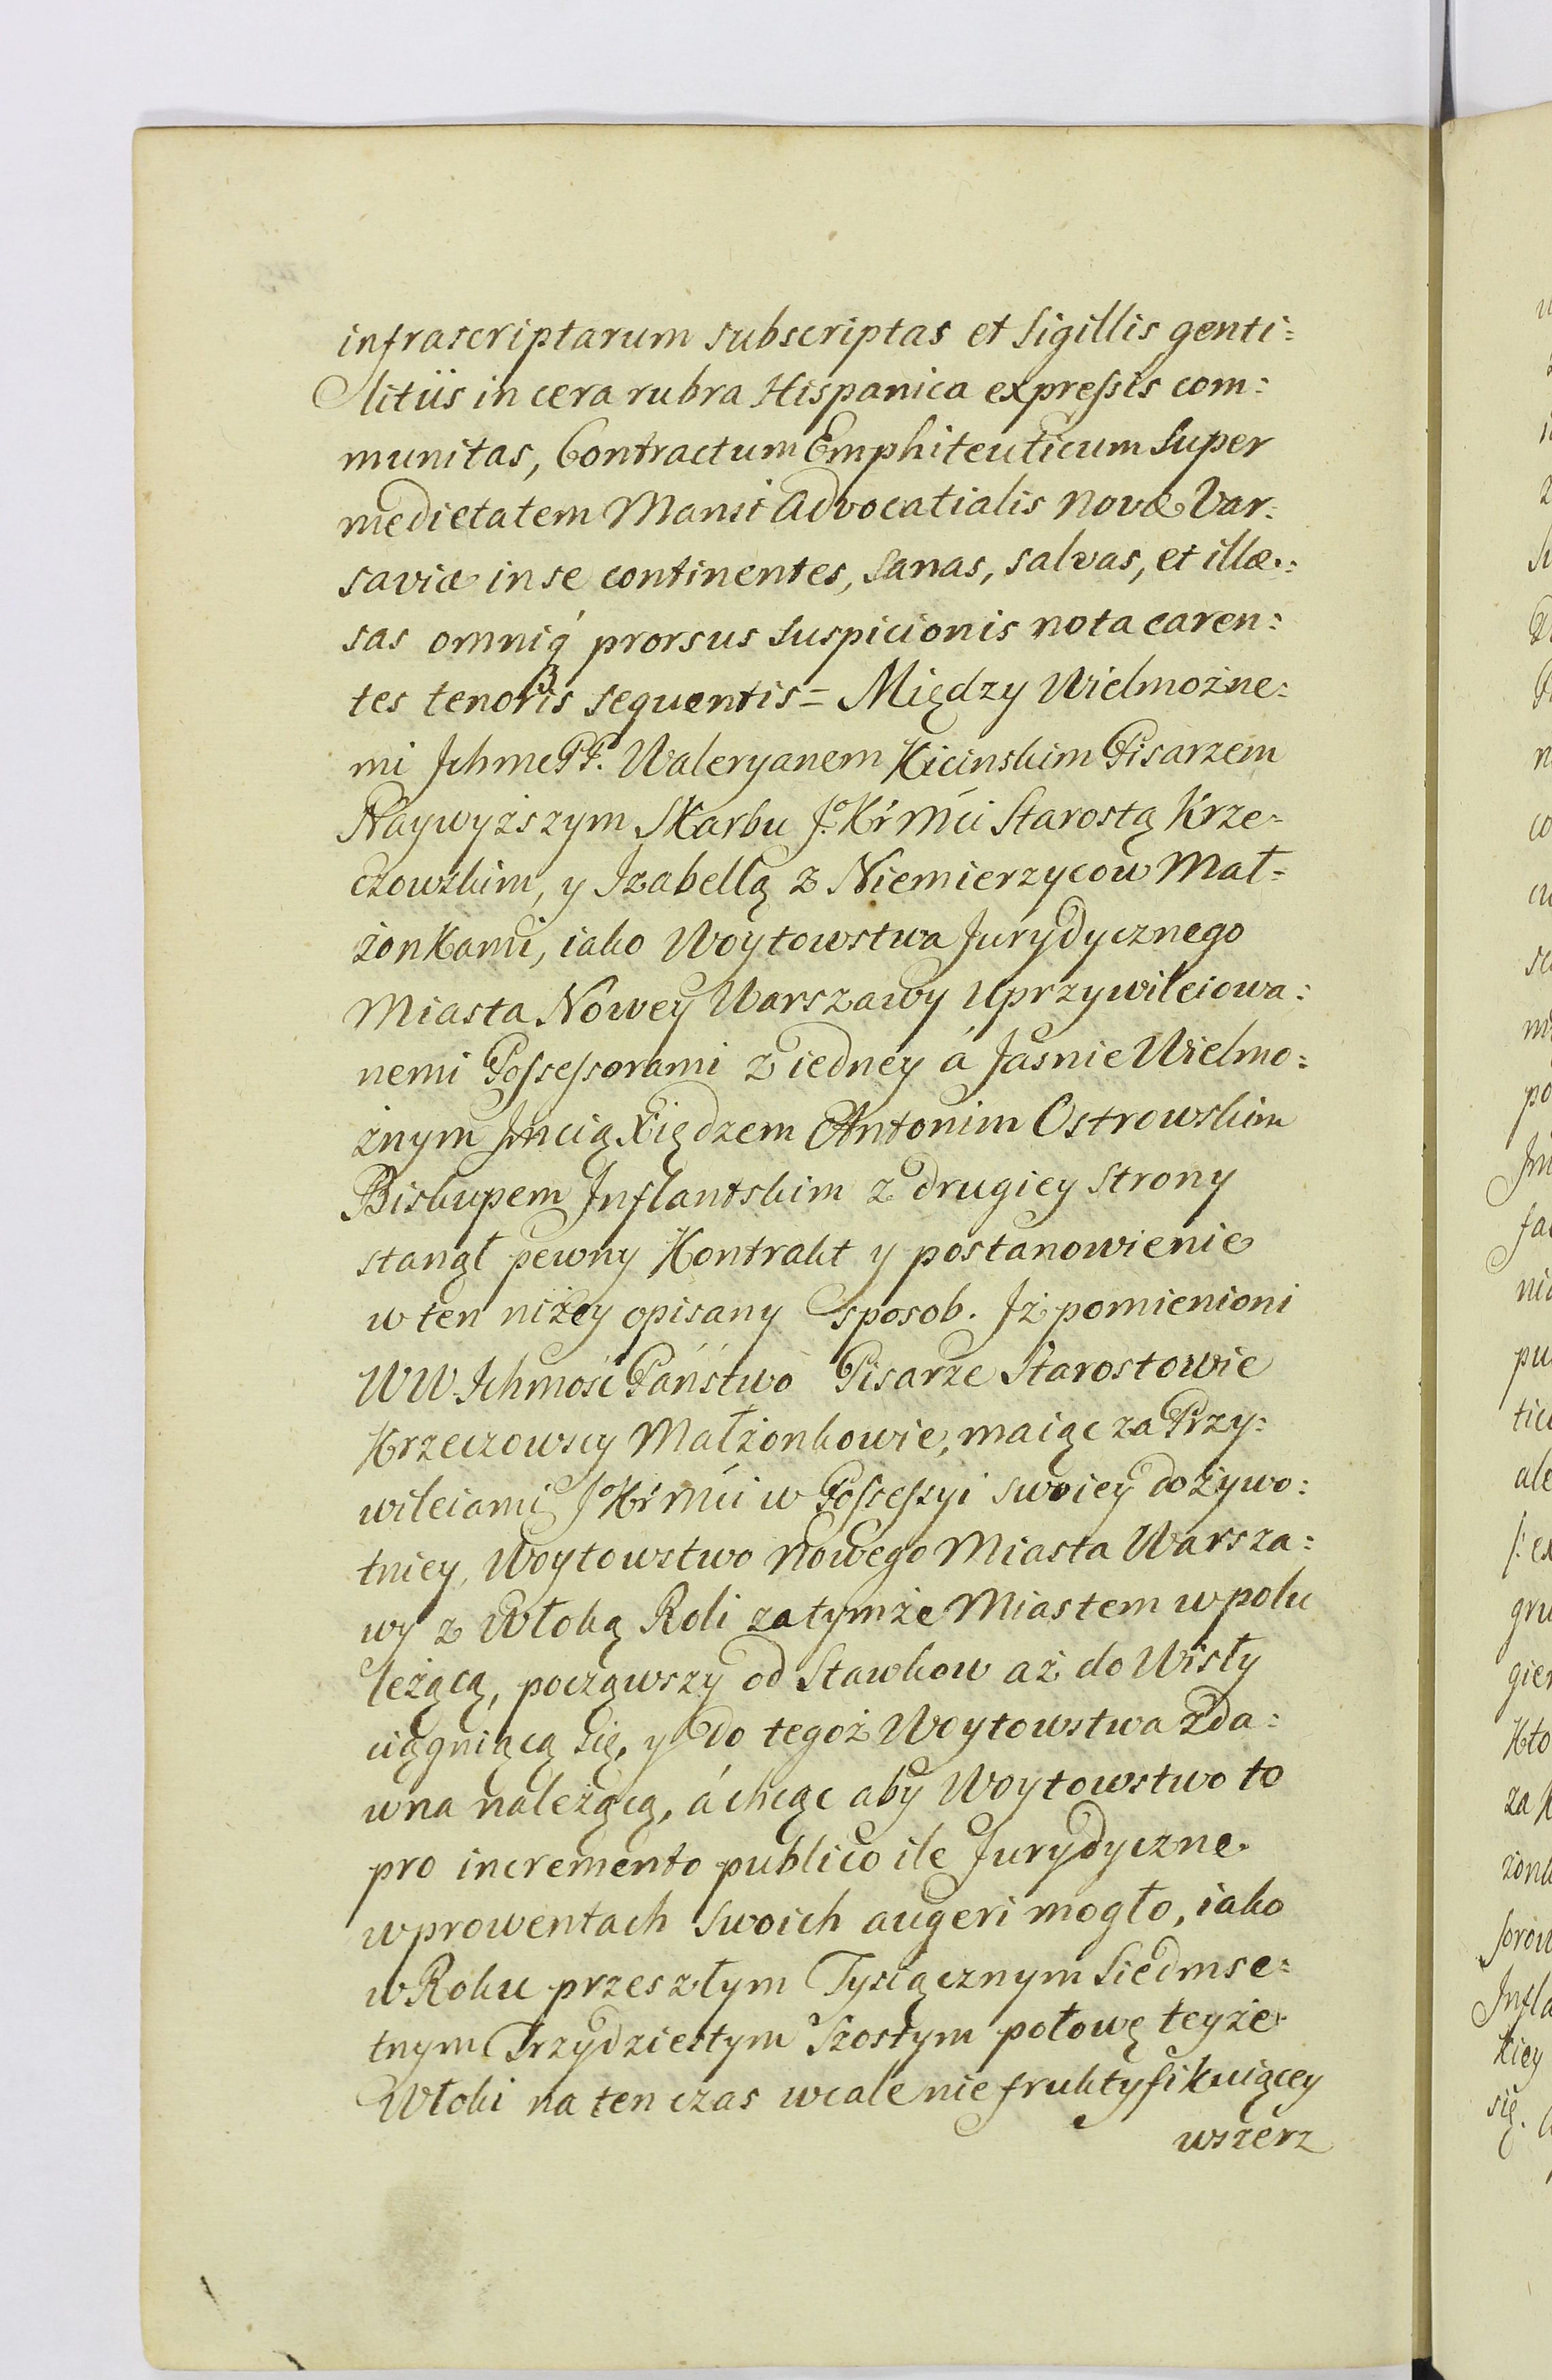 infrascriptarum subscriptas et Sigillis genti:
litiis in cera rubra Hispanica expreſsis com:
munitas, Contractum Emphiteuticum Super
medietatem Mansi Advocatialis Novæ Var:
saviæ in se continentes, Sanas, salvas, et illæ:
sas omniq́ prorsus Suspicionis nota caren:
tes tenoris sequentis = Między Wielmożne:
mi Ichmć PP. Waleryanem Kicinskim Pisarzem
Naywyższym Skarbu Jº Kŕ Mći Starostą Krze:
czowzkim, y Izabellą z Niemierzyców Mał:
żonkami, iako Woytowstwa Jurydycznego
Miasta Nowey Warszawy Uprzywileiowa:
nemi Poſseſsorami z iedney á Jaśnie Wielmo:
żnym Jmcią Xiędzem Antonim Ostrowskim
Biskupem Inflantskim z drugiey Strony
stanął pewny Kontrakt y postanowienie
w ten niżey opisany sposob. Iż pomienioni
WW Ichmość Państwo Pisarze Starostowie
Krzeczowscy Małżonkowie, maiąc za Przy:
wileiami Jº Kŕ Mći w Poſseſsyi swoiey dożywo:
tniey, Woytowstwo Nowego Miasta Warsza:
wy z Włoką Roli za tymże Miastem w polu
leżącą, począwszy od Stawkow aż do Wisły
ciągniącą się, y do tegoż Woytowstwa zda:
wna należącą, á chcąc aby Woytowstwo to
pro incremento publico ile Jurydyczne
w prowentach swoich augeri mogło, iako
w Roku przeszłym Tysiącznym Siedmse:
tnym Trzydziestym Szostym połowę teyże
Włoki na ten czas wcale nie fruktyfikuiącey
wszerz